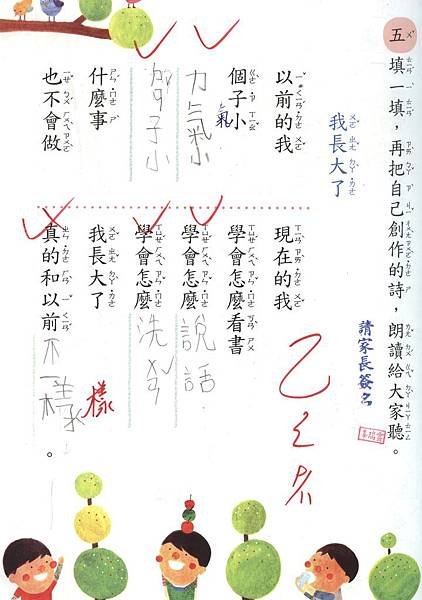 五 填一填，再把自己創作的詩，朗讀給大家聽。
我長大了
請家長簽名
以前的我
個子小
力氣小
氣
子小
什麼事
也不會做
現在的我
學會怎麼看書
學會怎麼說話
學會怎麼洗
我長大了
真的和以前不一樣。
樣
乙